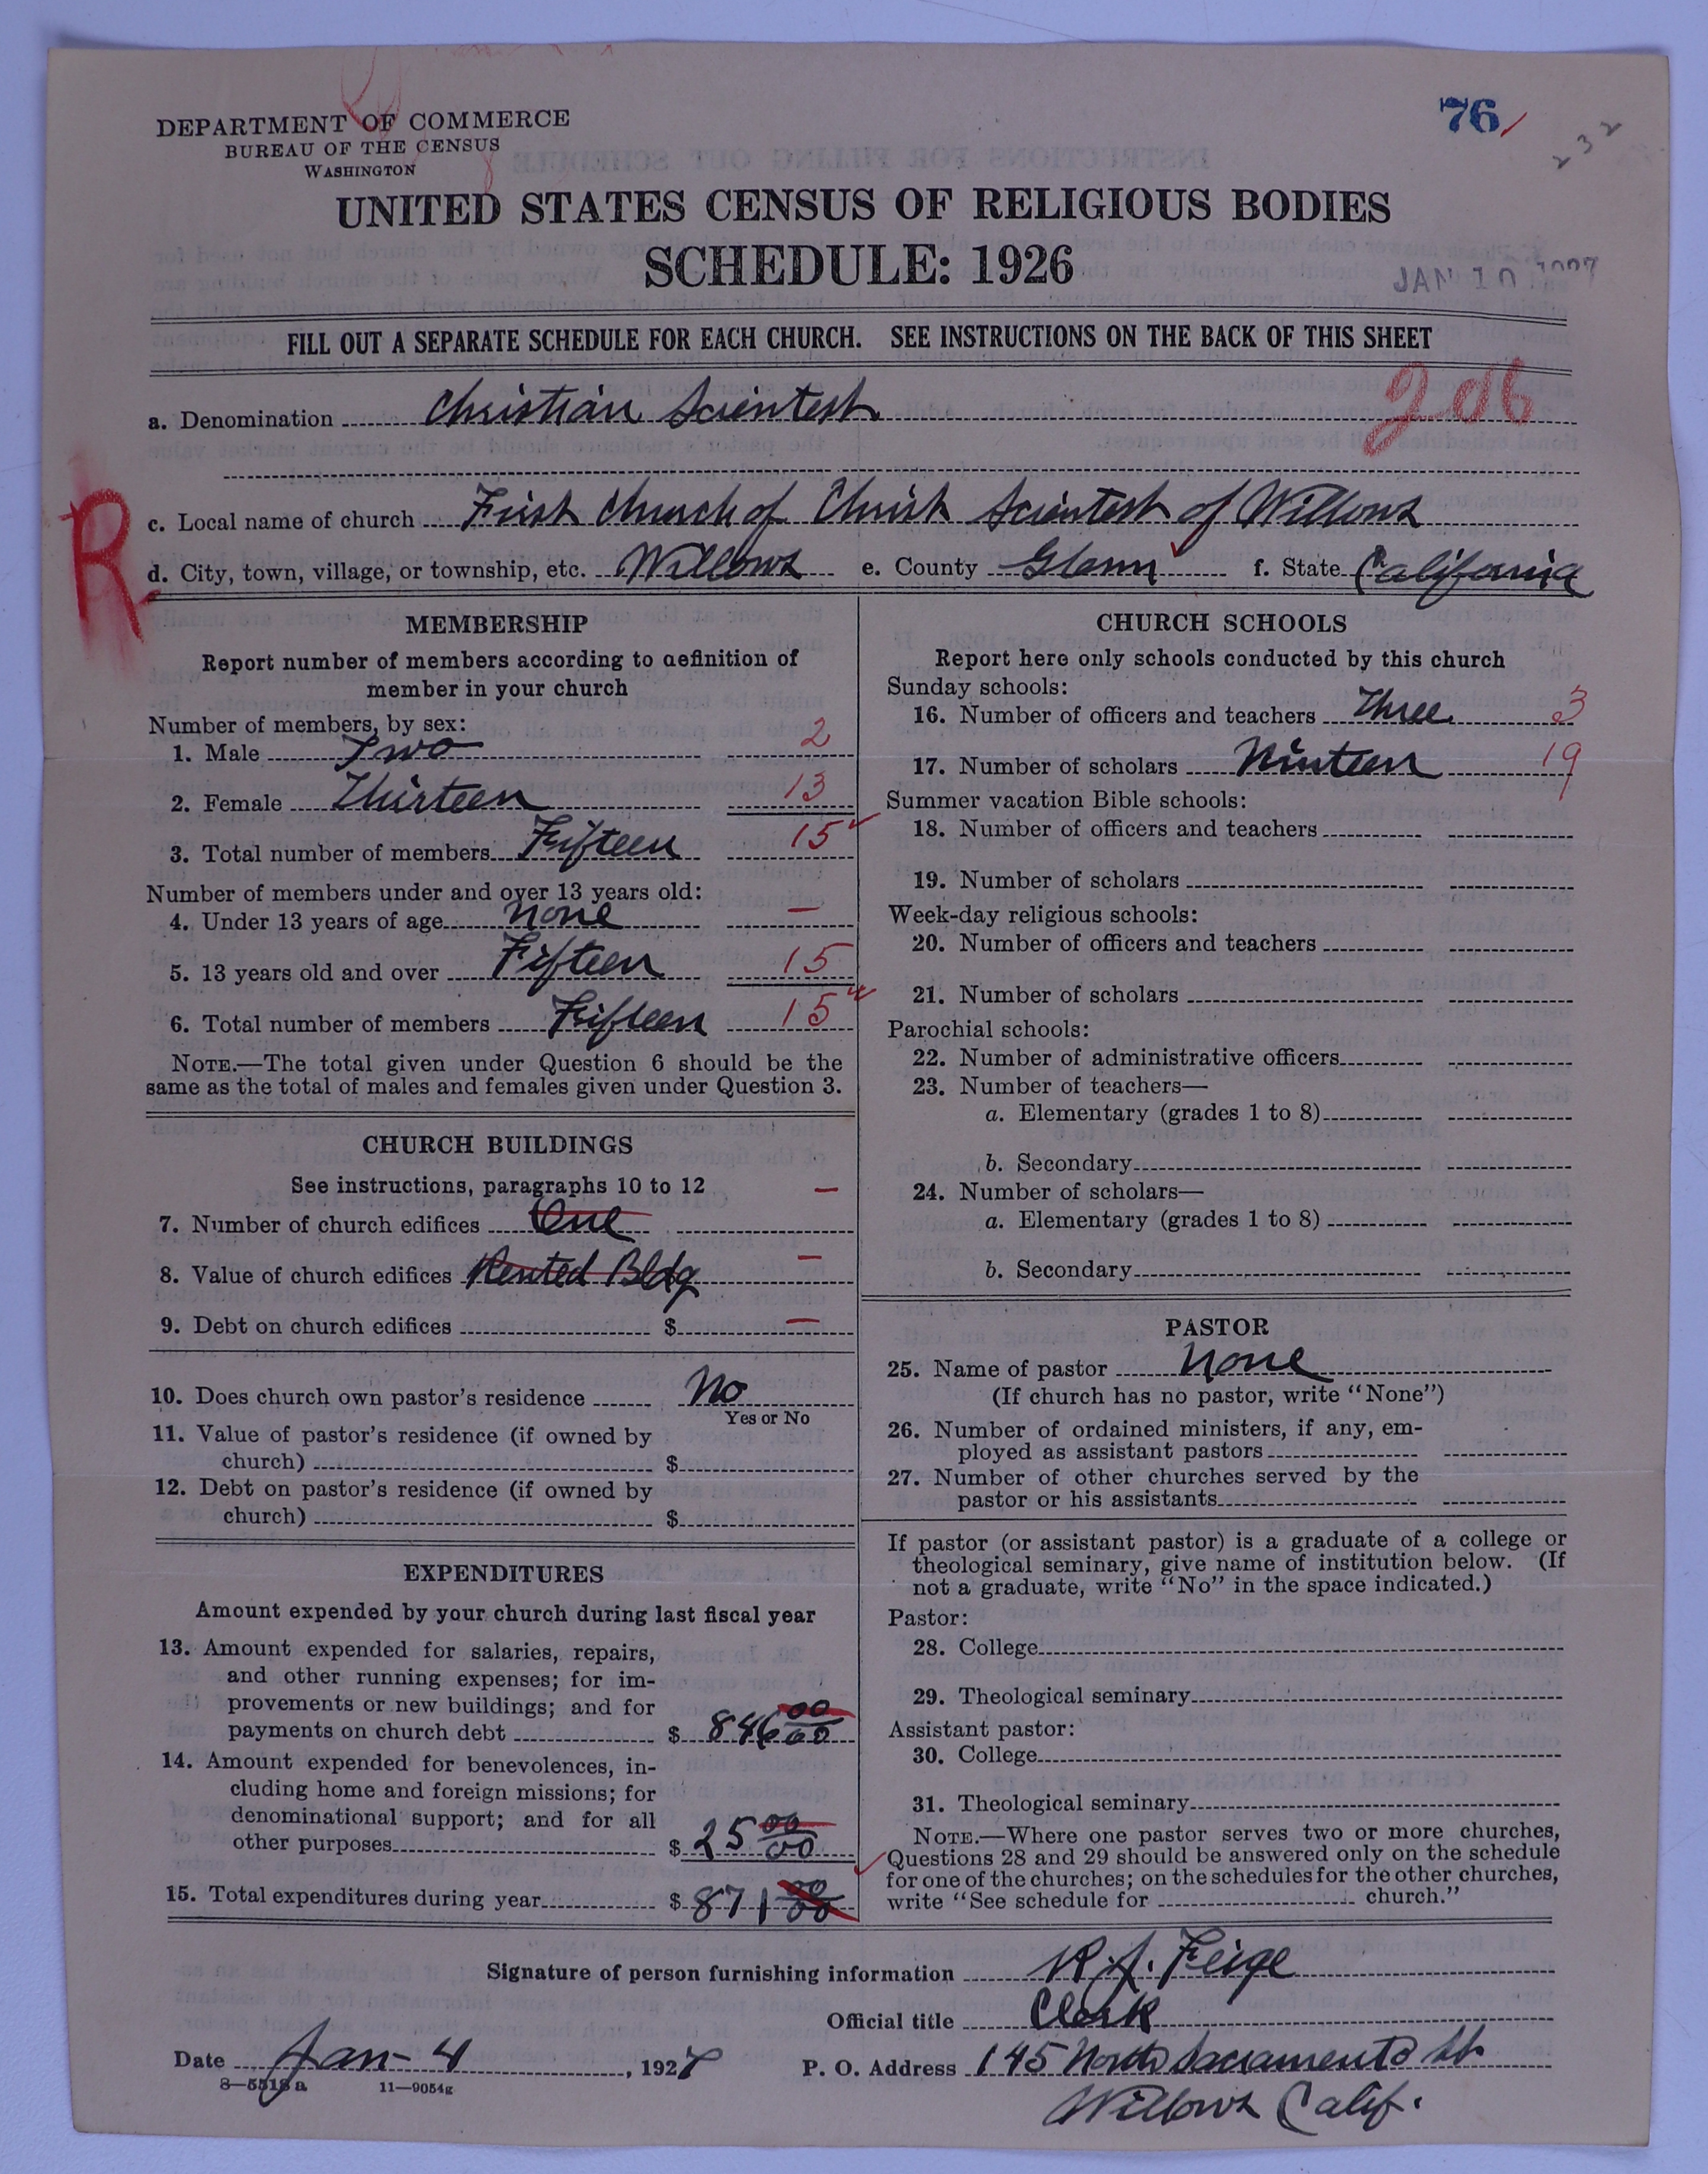 DEPARTMENT OF COMMERCE
BUREAU OF THE CENSUS
WASHINGTON
76
232
UNITED STATES CENSUS OF RELIGIOUS BODIES
SCHEDULE: 1926
JAN 10 1927
FILL OUT A SEPARATE SCHEDULE FOR EACH CHURCH. SEE INSTRUCTIONS ON THE BACK OF THIS SHEET
a. Denomination Christian Scientest
R
c. Local name of church First Church of Christ Scientest of Willows
d. City, town, village, or township, etc. Willows e. County Glenn f. State California
MEMBERSHIP
Report number of members according to definition of
member in your church
Number of members, by sex:
1. Male Two 2
2. Female Thirteen 13
3. Total number of members Fifteen 15
Number of members under and over 13 years old:
4. Under 13 years of age none –
5. 13 years old and over Fifteen 15
6. Total number of members Fifteen 15
NOTE.—The total given under Question 6 should be the
same as the total of males and females given under Question 3.
CHURCH BUILDINGS
See instructions, paragraphs 10 to 12 –
7. Number of church edifices One
8. Value of church edifices Rented Bldg –
9. Debt on church edifices $ –
10. Does church own pastor's residence No
Yes or No
11. Value of pastor's residence (if owned by
church) $
12. Debt on pastor's residence (if owned by
church) $
EXPENDITURES
Amount expended by your church during last fiscal year
13. Amount expended for salaries, repairs,
and other running expenses; for im-
provements or new buildings; and for
payments on church debt $ 846 00/00
14. Amount expended for benevolences, in-
cluding home and foreign missions; for
denominational support; and for all
other purposes $ 25 00/00
15. Total expenditures during year $ 871 00/00
CHURCH SCHOOLS
Report here only schools conducted by this church
Sunday schools:
16. Number of officers and teachers Three 3
17. Number of scholars Ninteen 19
Summer vacation Bible schools:
18. Number of officers and teachers
19. Number of scholars
Week-day religious schools:
20. Number of officers and teachers
21. Number of scholars
Parochial schools:
22. Number of administrative officers
23. Number of teachers—
a. Elementary (grades 1 to 8)
b. Secondary
24. Number of scholars—
a. Elementary (grades 1 to 8)
b. Secondary
PASTOR
25. Name of pastor None
(If church has no pastor, write "None")
26. Number of ordained ministers, if any, em-
ployed as assistant pastors
27. Number of other churches served by the
pastor or his assistants
If pastor (or assistant pastor) is a graduate of a college or
theological seminary, give name of institution below. (If
not a graduate, write "No" in the space indicated.)
Pastor:
28. College
29. Theological seminary
Assistant pastor:
30. College
31. Theological seminary
NOTE.—Where one pastor serves two or more churches,
Questions 28 and 29 should be answered only on the schedule
for one of the churches; on the schedules for the other churches,
write "See schedule for church."
Signature of person furnishing information R. J. Feige
Official title Clerk
Date Jan - 4, 1927 P. O. Address 145 North Sacramento St.
8—5518a 11—9054g
Willows Calif.